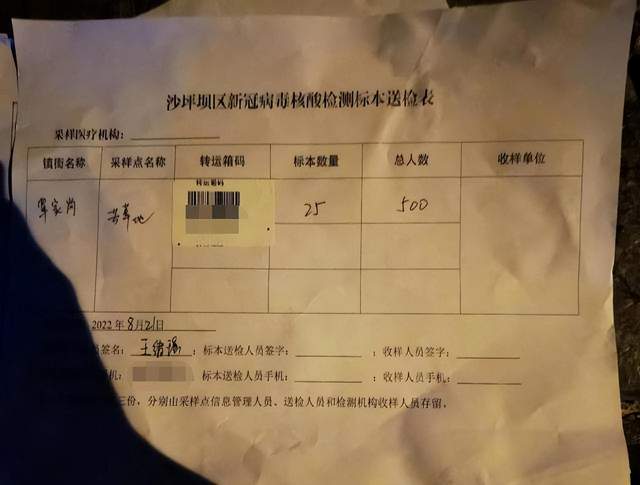 沙坪坝区新冠病毒核酸检测标本送检表
采样医疗机构：
镇街名称 采样点名称 转运箱码 标本数量 总人数 收样单位
转运箱码
覃家岗 25 500
2022年8月21日
签名： ；标本送检人员签字： ；收样人员签字：
机： 标本送检人员手机： ；收样人员手机：
三份，分别由采样点信息管理人员、送检人员和检测机构收样人员存留。